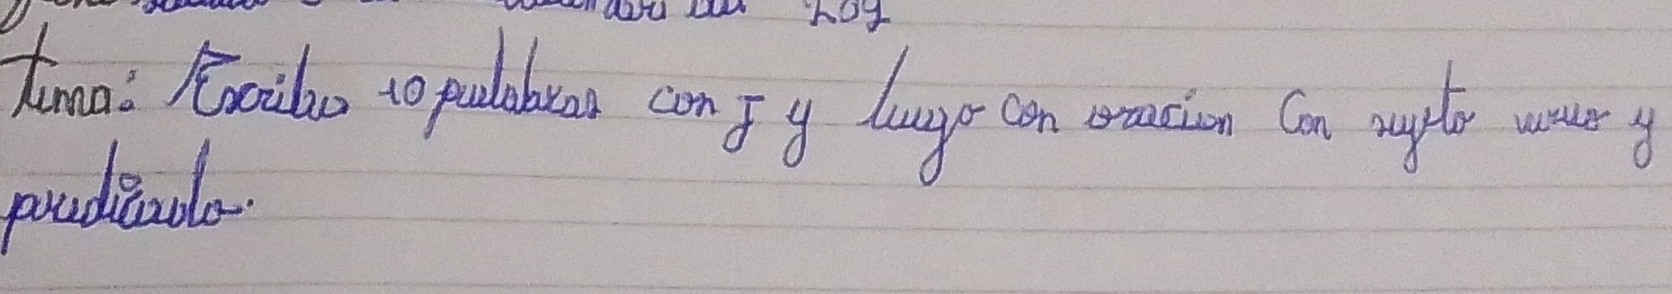 tema: Escribo 10 palabras con J y luego con oracion Con sujeto verbo y
predicado.